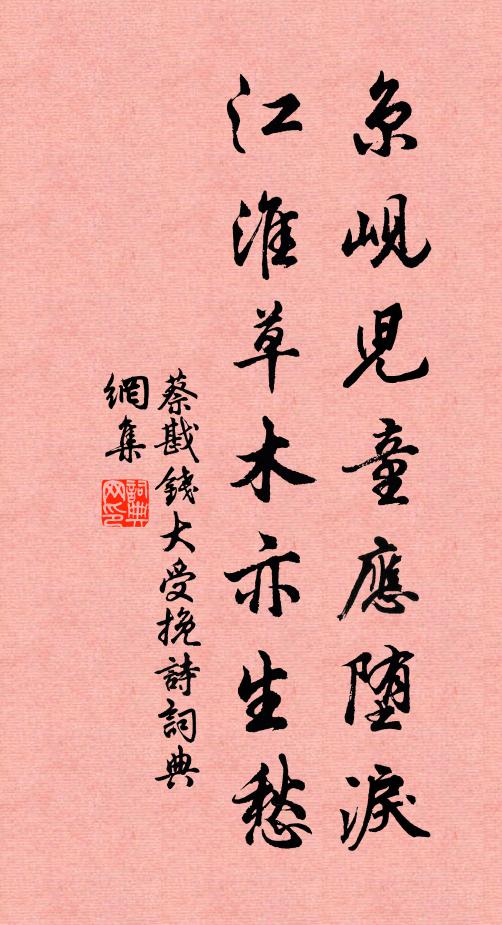 京峴兒童應堕淚
江淮草木亦生愁
蔡戡錢大受挽詩詞典
網集
詞典
网印